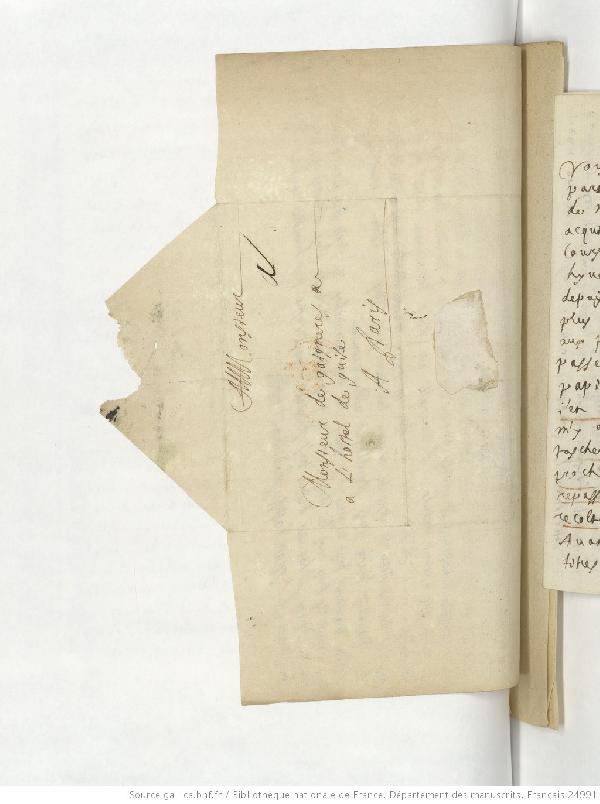 A Monsieur
Monsieur de gaignieres
a L hostel de guise
A Paris
par
de
acqu
depa
plus
aux
passe
papi
j'en
m'y
proch
repass
recolt
Auan
titres
Source gallica.bnf.fr / Bibliothèque nationale de France. Département des manuscrits. Français 24991